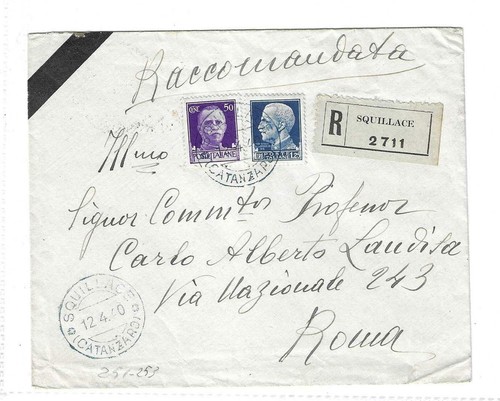 Raccomandata
CENT. 50
POSTE ITALIANE
1,25
(CATANZARO)
R
SQUILLACE
2711
Illmo
Signor Commtor Professor
Carlo Alberto Landisa
Via Nazionale 243
Roma
SQUILLACE
12.4.40
(CATANZARO)
251-253